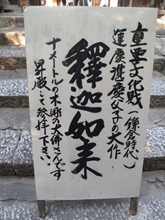 重要文化財（鎌倉時代）
運慶湛慶父子の大作
釋迦如来
十メートルの木彫の大佛さんです
昇殿して拝下さい。